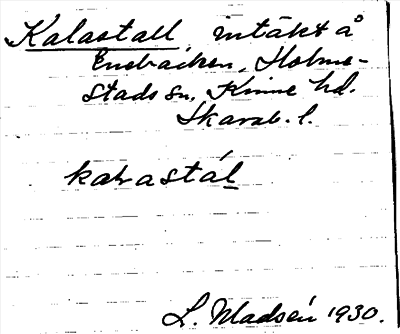 Kalastall, intäkt å
Enebacken, Holme-
stads sn, Kinne hd.
Skarab. l.
kalrastál
L. Madsén 1930.